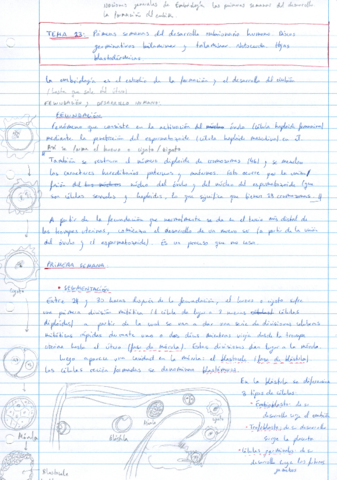 nociones generales de embriología. Las primeras semanas del desarrollo
la formación del embrión
TEMA 23: Primeras semanas del desarrollo embrionario humano. Discos
germinativos bilaminar y trilaminar. Notocorda. Hojas
blastodérmicas
La embriología es el estudio de la formación y el desarrollo del embrión
(hasta que sale del útero)
FECUNDACIÓN Y DESARROLLO HUMANO
FECUNDACIÓN
Fenómeno que consiste en la activación del óvulo (célula haploide femenina)
mediante la penetración del espermatozoide (célula haploide masculina) en
Así se forma el huevo o cigoto / zigoto
También se restaura el número diploide de cromosomas (46) y se mezclan
los caracteres hereditarios paternos y maternos. Esto ocurre por la unión/
fusión del núcleo del óvulo y del núcleo del espermatozoide (que
son células sexuales y haploides, lo que significa que tienen 23 cromosomas
A partir de la fecundación que normalmente se da en el tercio más distal de
las trompas uterinas, comienza el desarrollo de un nuevo ser (a partir de la unión
del óvulo y el espermatozoide). Es un proceso que no cesa.
PRIMERA SEMANA
• SEGMENTACIÓN
Entre 28 y 30 horas después de la fecundación, el huevo o cigoto sufre
una primera división mitótica (1 célula da lugar a 2 nuevas células
diploides) a partir de la cual se van a dar una serie de divisiones celulares
mitóticas rápidas durante uno o dos días mientras viaja desde la trompa
uterina hasta el útero (fase de mórula). Estas divisiones dan lugar a la mórula.
Luego aparece una cavidad en la mórula: el blastocele (fase de blástula).
Las células recién formadas se denominan blastómeros.
En la blástula se diferencian
2 tipos de células:
- Embrioblasto: de su
desarrollo surge el embrión
- Trofoblasto: de su desarrollo
surge la placenta
desarrollo surgen las fibras
Cigoto
Mórula
Mórula
Blástula